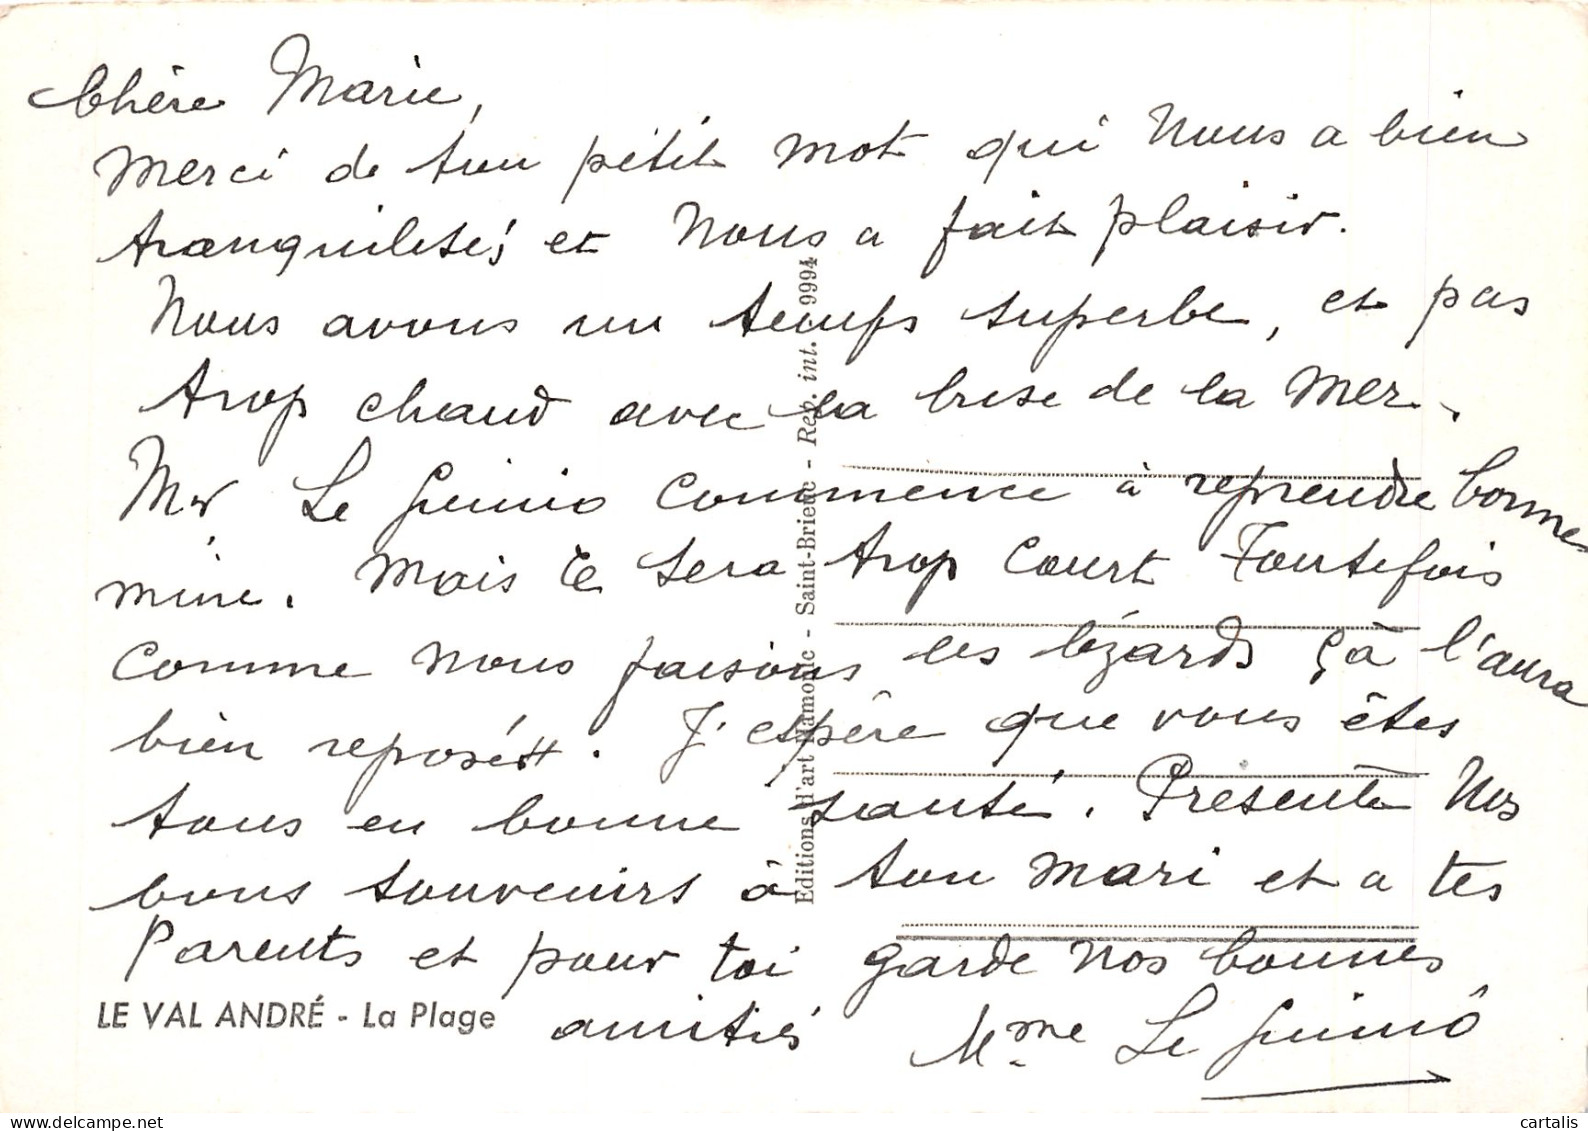 Chère Marie,
Merci de ton pétit mot qui Nous a bien
tranquilisé, et Nous a fait plaisir.
Nous avons un temps superbe, et pas
trop chaud avec la brise de la Mer.
Mr Le Guinio commence à reprendre bonne
mine. Mais ce sera trop court Toutefois
Comme nous faisons les lézards çà l'aura
bien reposé. J'espère que vous êtes
tous en bonne santé. Présente Nos
bons souvenirs à ton mari et a tes
Parents et pour toi garde nos bonnes
amitiés
Mme Le Guiniô
LE VAL ANDRÉ - La Plage
Editions d'art Jamonic - Saint-Brieuc - Rep. int. 9994
cartalis